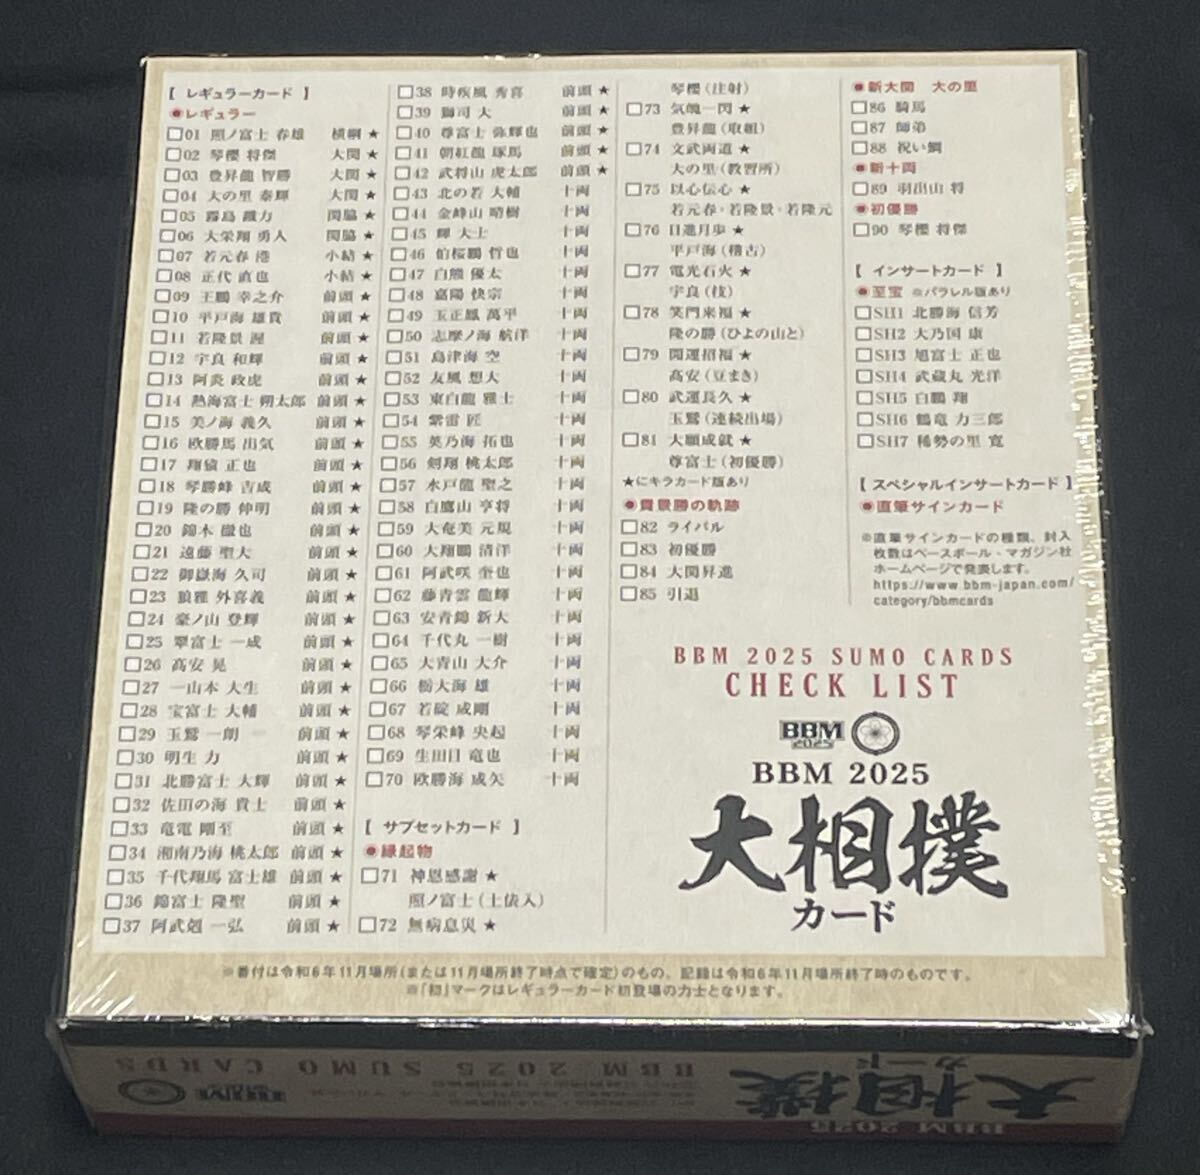 【 レギュラーカード 】
◉レギュラー
□01 照ノ富士 春雄 横綱 ★
□02 琴櫻 将傑 大関 ★
□03 豊昇龍 智勝 大関 ★
□04 大の里 泰輝 大関 ★
□05 霧島 鐵力 関脇 ★
□06 大栄翔 勇人 関脇 ★
□07 若元春 港 小結 ★
□08 正代 直也 小結 ★
□09 王鵬 幸之介 前頭 ★
□10 平戸海 雄貴 前頭 ★
□11 若隆景 渥 前頭 ★
□12 宇良 和輝 前頭 ★
□13 阿炎 政虎 前頭 ★
□14 熱海富士 朔太郎 前頭 ★
□15 美ノ海 義久 前頭 ★
□16 欧勝馬 出気 前頭 ★
□17 翔猿 正也 前頭 ★
□18 琴勝峰 吉成 前頭 ★
□19 隆の勝 伸明 前頭 ★
□20 錦木 徹也 前頭 ★
□21 遠藤 聖大 前頭 ★
□22 御嶽海 久司 前頭 ★
□23 狼雅 外喜義 前頭 ★
□24 豪ノ山 登輝 前頭 ★
□25 翠富士 一成 前頭 ★
□26 高安 晃 前頭 ★
□27 一山本 大生 前頭 ★
□28 宝富士 大輔 前頭 ★
□29 玉鷲 一朗 前頭 ★
□30 明生 力 前頭 ★
□31 北勝富士 大輝 前頭 ★
□32 佐田の海 貴士 前頭 ★
□33 竜電 剛至 前頭 ★
□34 湘南乃海 桃太郎 前頭 ★
□35 千代翔馬 富士雄 前頭 ★
□36 錦富士 隆聖 前頭 ★
□37 阿武剋 一弘 前頭 ★
□38 時疾風 秀喜 前頭 ★
□39 獅司 大 前頭 ★
□40 尊富士 弥輝也 前頭 ★
□41 朝紅龍 琢馬 前頭 ★
□42 武将山 虎太郎 前頭 ★
□43 北の若 大輔 十両
□44 金峰山 晴樹 十両
□45 輝 大士 十両
□46 伯桜鵬 哲也 十両
□47 白熊 優太 十両
□48 嘉陽 快宗 十両
□49 玉正鳳 萬平 十両
□50 志摩ノ海 航洋 十両
□51 島津海 空 十両
□52 友風 想大 十両
□53 東白龍 雅士 十両
□54 紫雷 匠 十両
□55 英乃海 拓也 十両
□56 剣翔 桃太郎 十両
□57 水戸龍 聖之 十両
□58 白鷹山 亨将 十両
□59 大奄美 元規 十両
□60 大翔鵬 清洋 十両
□61 阿武咲 奎也 十両
□62 藤青雲 龍輝 十両
□63 安青錦 新大 十両
□64 千代丸 一樹 十両
□65 大青山 大介 十両
□66 栃大海 雄 十両
□67 若碇 成剛 十両
□68 琴栄峰 央起 十両
□69 生田目 竜也 十両
□70 欧勝海 成矢 十両
【 サブセットカード 】
◉縁起物
□71 神恩感謝 ★
照ノ富士(土俵入)
□72 無病息災 ★
琴櫻(注射)
□73 気魄一閃 ★
豊昇龍(取組)
□74 文武両道 ★
大の里(教習所)
□75 以心伝心 ★
若元春・若隆景・若隆元
□76 日進月歩 ★
平戸海(稽古)
□77 電光石火 ★
宇良(技)
□78 笑門来福 ★
隆の勝(ひよの山と)
□79 開運招福 ★
高安(豆まき)
□80 武運長久 ★
玉鷲(連続出場)
□81 大願成就 ★
尊富士(初優勝)
★にキラカード版あり
◉貴景勝の軌跡
□82 ライバル
□83 初優勝
□84 大関昇進
□85 引退
◉新大関 大の里
□86 騎馬
□87 師弟
□88 祝い鯛
◉新十両
□89 羽出山 将
◉初優勝
□90 琴櫻 将傑
【 インサートカード 】
◉至宝 ※パラレル版あり
□SH1 北勝海 信芳
□SH2 大乃国 康
□SH3 旭富士 正也
□SH4 武蔵丸 光洋
□SH5 白鵬 翔
□SH6 鶴竜 力三郎
□SH7 稀勢の里 寛
【 スペシャルインサートカード 】
◉直筆サインカード
※直筆サインカードの種類、封入
枚数はベースボール・マガジン社
ホームページで発表します。
https://www.bbm-japan.com/
category/bbmcards
BBM 2025 SUMO CARDS
CHECK LIST
BBM
2025
BBM 2025
大相撲
カード
※番付は令和6年11月場所(または11月場所終了時点で確定)のもの、記録は令和6年11月場所終了時のものです。
※「初」マークはレギュラーカード初登場の力士となります。
BBM 2025 SUMO CARDS
BBM 2025
大相撲
カード